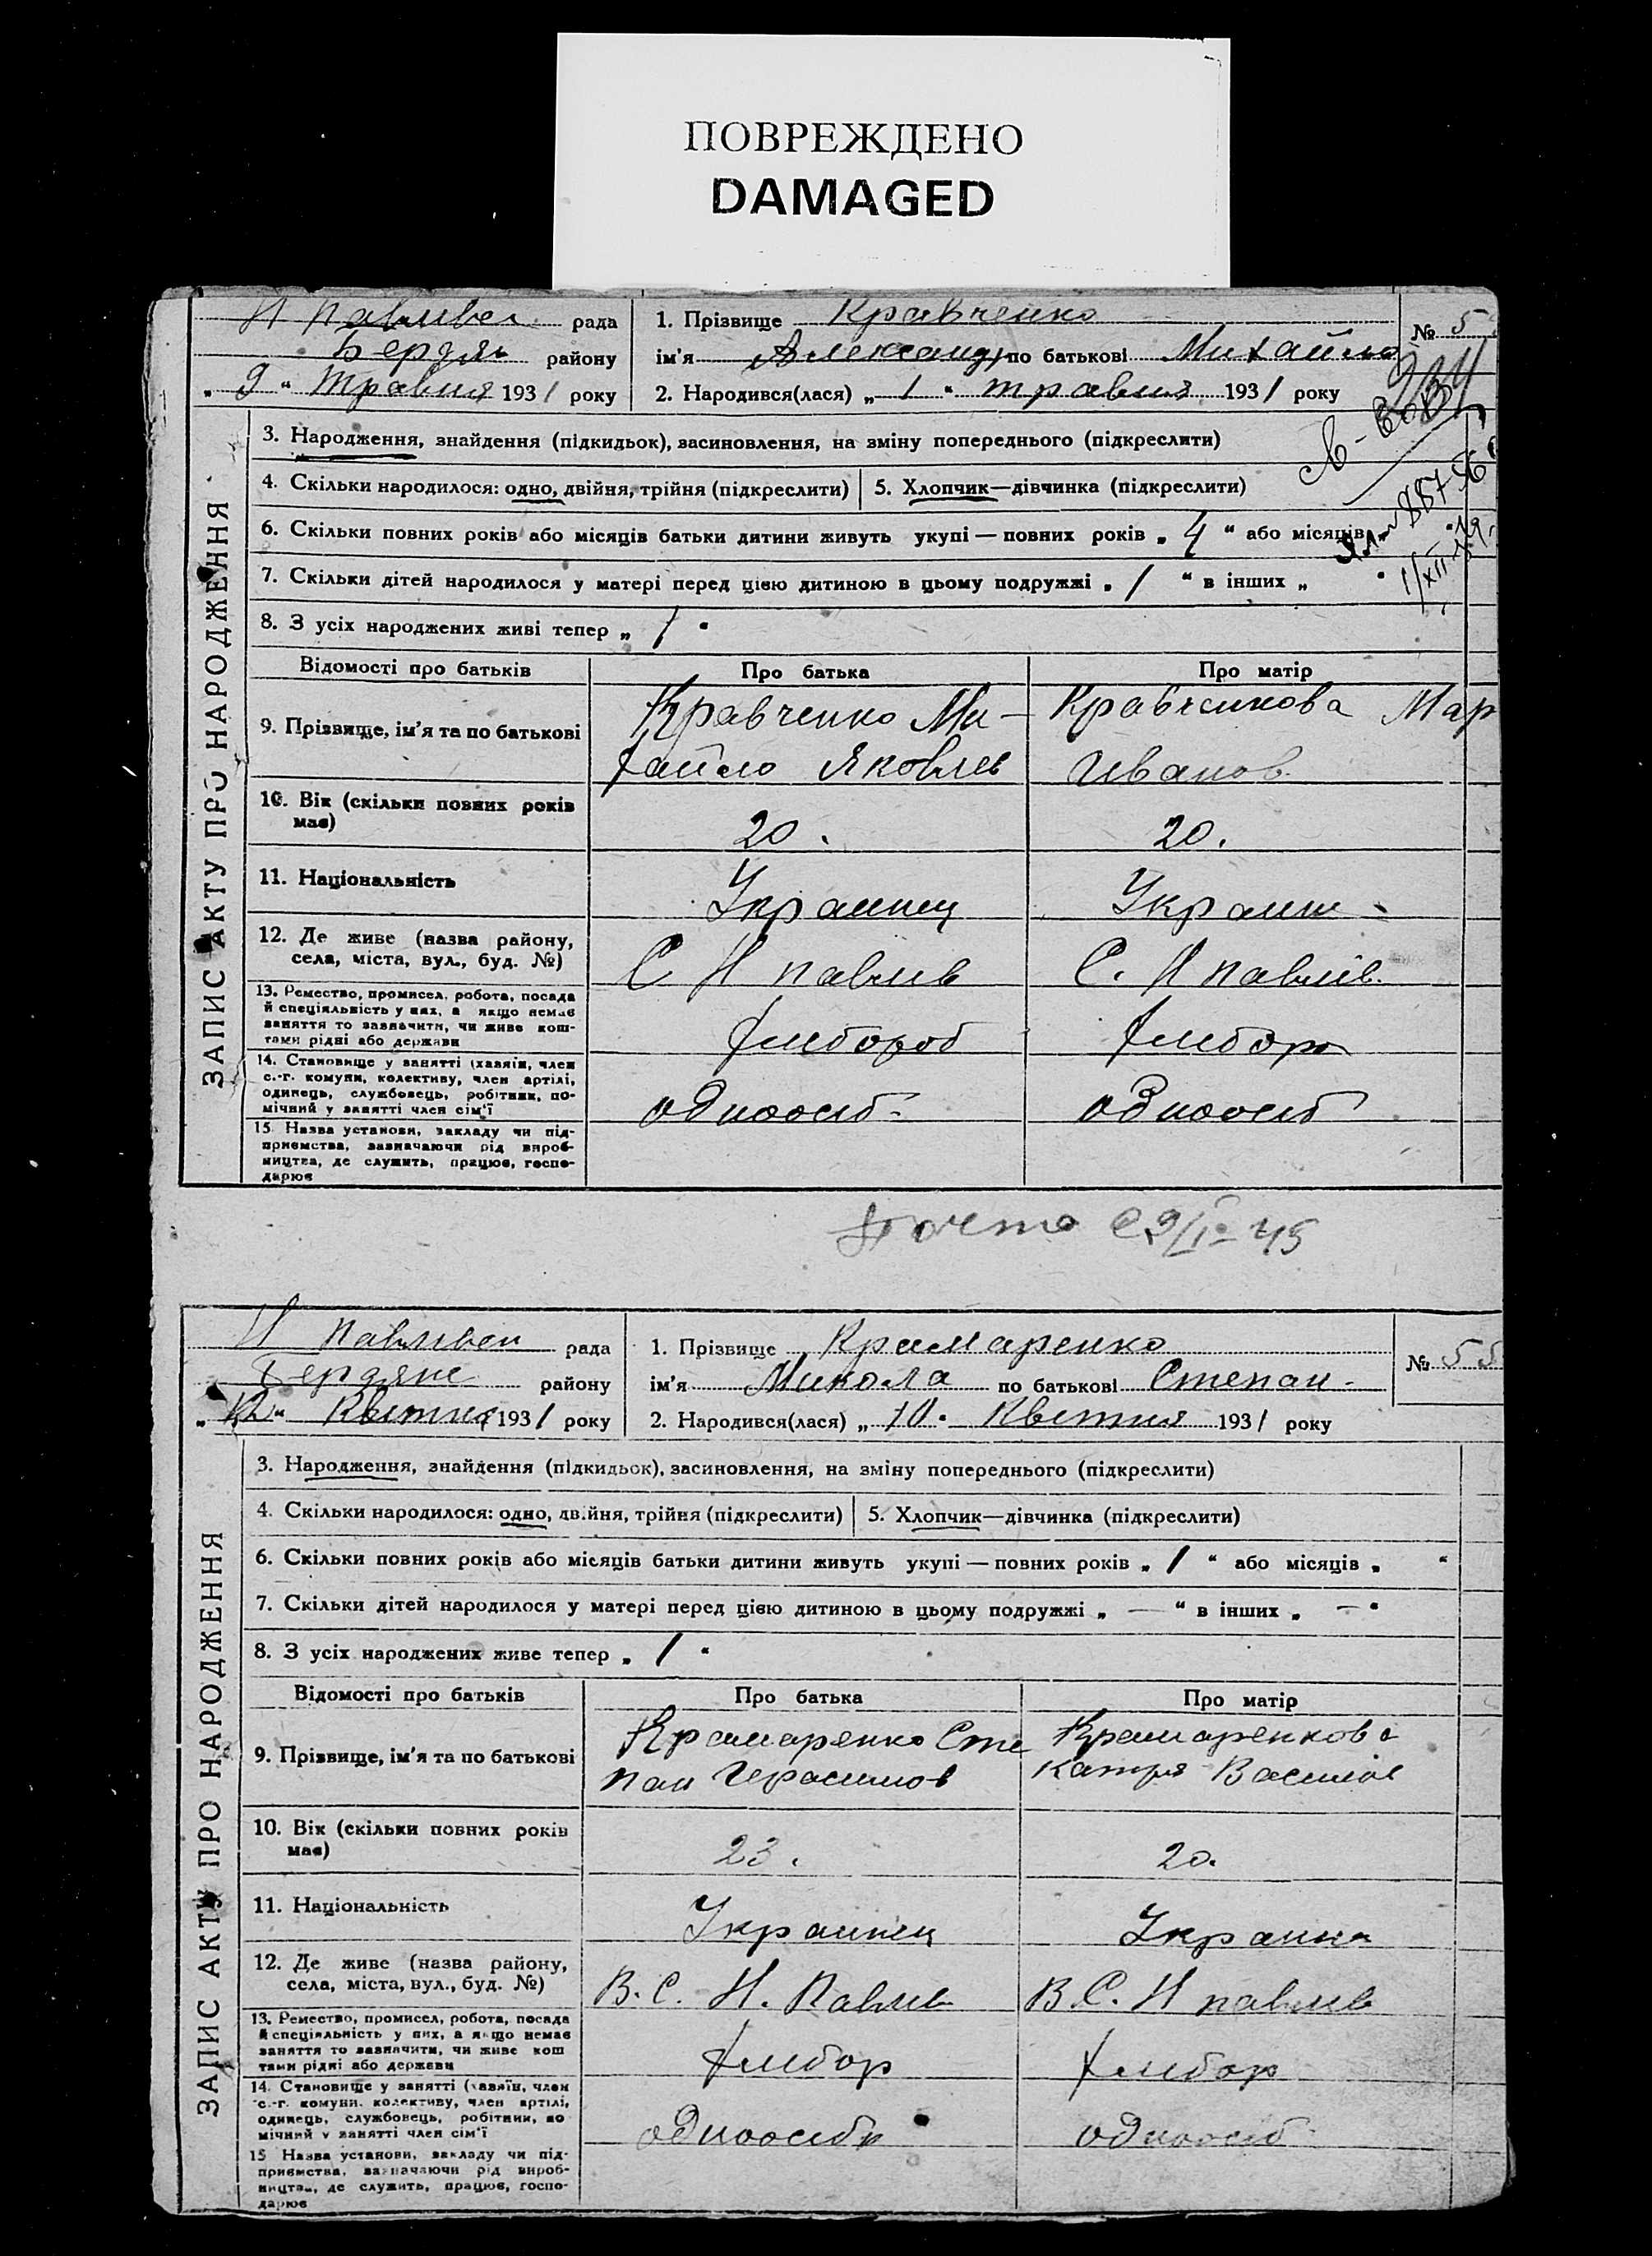 ПОВРЕЖДЕНО
DAMAGED
Н Павливск рада
Бердян району
„ 9 “ травня 1931 року
1. Прізвище Кравченко
ім'я Александр по батькові Михайло
2. Народився(лася) „ 1 “ травня 1931 року
№ 5
3. Народження, знайдення (підкидьок), засиновлення, на зміну попереднього (підкреслити)
4. Скільки народилося: одно, двійня, трійня (підкреслити)
5. Хлопчик—дівчинка (підкреслити)
6. Скільки повних років або місяців батьки дитини живуть укупі — повних років „ 4 “ або місяців „
7. Скільки дітей народилося у матері перед цією дитиною в цьому подружжі „ 1 “ в інших „ “
8. З усіх народжених живі тепер „ 1 “
ЗАПИС АКТУ ПРО НАРОДЖЕННЯ
Відомості про батьків Про батька Про матір
9. Прізвище, ім'я та по батькові
Кравченко Ми-
хайло Яковлев
Кравченкова Мар
Иванов
10. Вік (скільки повних років
має)
20. 20.
11. Національність
Украинец Украин
12. Де живе (назва району,
села, міста, вул., буд. №)
С Н павлив С. Н павлів
13. Ремество, промисел, робота, посада
й спеціяльність у них, а якщо немає
заняття то зазначити, чи живе кош-
тами рідні або держави
хлибороб хлибороб
14. Становище у занятті (хазяїн, член
с.-г. комуни, колективу, член артілі,
одинець, службовець, робітник, по-
мічний у занятті член сім'ї
одноосіб одноосіб
15. Назва установи, закладу чи під-
приємства, зазначаючи рід вироб-
ництва, де служить, працює, госпо-
дарює
45
Н Павливск рада
Бердянс району
„ 12 “ Квитня 1931 року
1. Прізвище Крамаренко
ім'я Микола по батькові Степан-
2. Народився(лася) „ 10 “ Квитня 1931 року
№ 55
3. Народження, знайдення (підкидьок), засиновлення, на зміну попереднього (підкреслити)
4. Скільки народилося: одно, двійня, трійня (підкреслити)
5. Хлопчик—дівчинка (підкреслити)
6. Скільки повних років або місяців батьки дитини живуть укупі — повних років „ 1 “ або місяців „ “
7. Скільки дітей народилося у матері перед цією дитиною в цьому подружжі „ — “ в інших „ — “
8. З усіх народжених живе тепер „ 1 “
ЗАПИС АКТУ ПРО НАРОДЖЕННЯ
Відомості про батьків Про батька Про матір
9. Прізвище, ім'я та по батькові
Крамаренко Сте
пан Герасимов
Крамаренкова
Катря Василів
10. Вік (скільки повних років
має)
23. 20.
11. Національність
Украинец Украинка
12. Де живе (назва району,
села, міста, вул., буд. №)
В. С. Н. Павлив В. С. Н павлив
13. Ремество, промисел, робота, посада
й спеціяльність у них, а якщо немає
заняття то зазначити, чи живе кош
тами рідні або держави
хлибор хлибор
14. Становище у занятті (хазяїн, член
с.-г. комуни, колективу, член артілі,
одинець, службовець, робітник, по
мічний у занятті член сім'ї
одноосібн одноосіб
15 Назва установи, закладу чи під-
приємства, зазначаючи рід вироб-
ництва, де служить, працює, госпо-
дарює